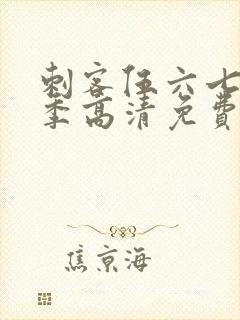 刺客伍六七
季高清免费
焦京海